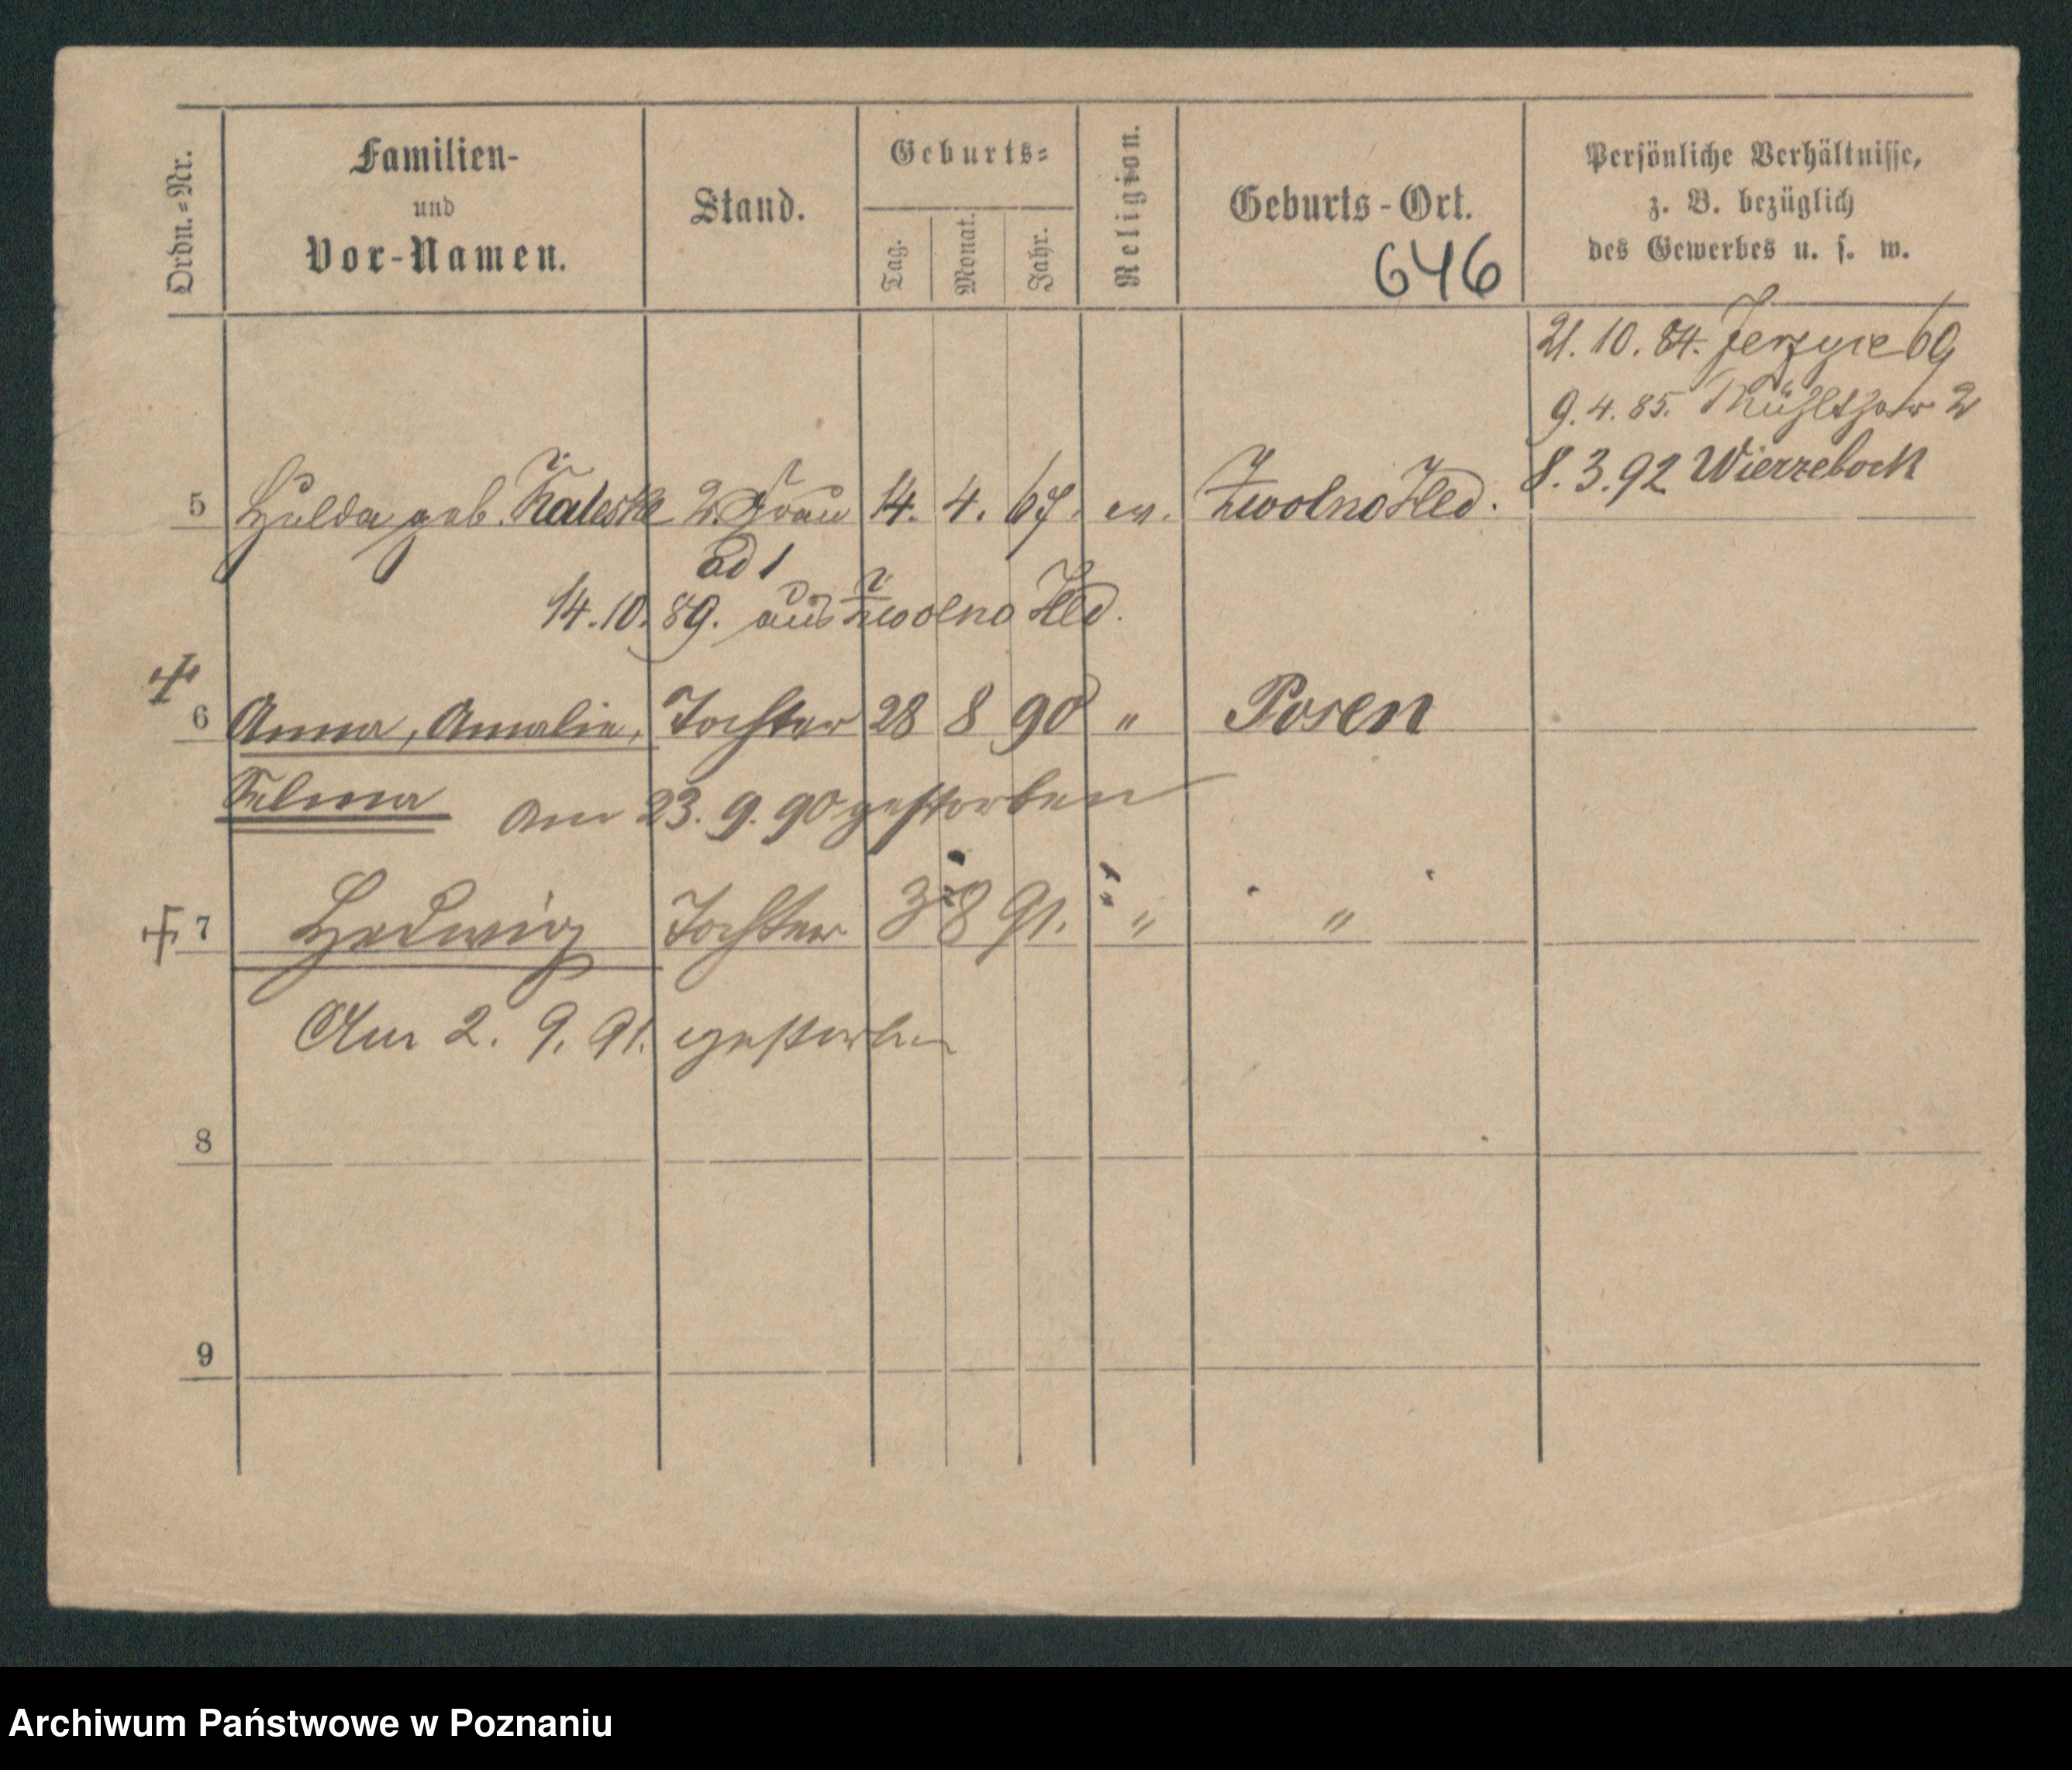 Ordn.-Nr.
Familien-
und
Vor-Namen.
Stand.
Geburts-
Tag.
Monat.
Jahr.
Religion.
Geburts-Ort.
646
Persönliche Verhältnisse,
z. B. bezüglich
des Gewerbes u. s. w.
21. 10. 84. Jerzyce 69
9. 4. 85. Mühlthor 2
8. 3. 92 Wierzebock
5 Hulda geb. Kaleske 2. Frau 14. 4. 67. ev. Zwolno Hld.
ad 1
14. 10. 89. aus Zwolno Hld.
6 Anna, Amalie, Tochter 28 8 90 " Posen
Selma am 23. 9. 90 gestorben
7 Hedwig Tochter 3 8 91. " "
Am 2. 9. 91. gestorben
8
9
Archiwum Państwowe w Poznaniu